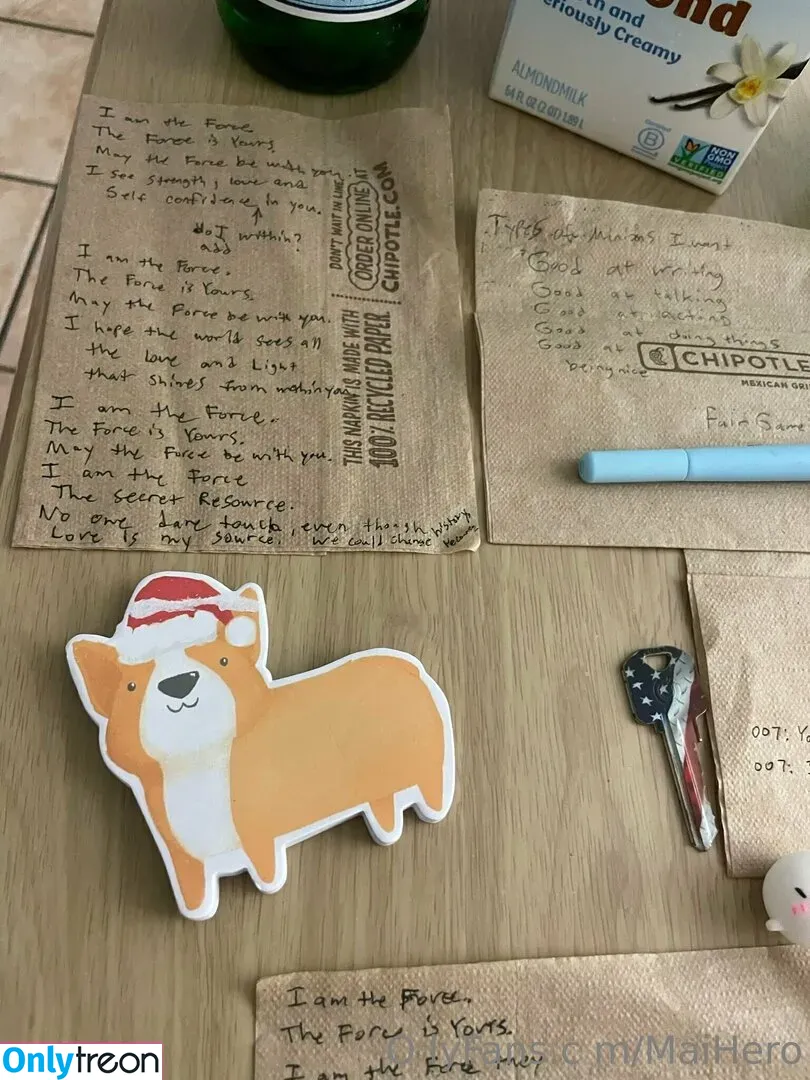 ond
th and
eriously Creamy
ALMONDMILK
64 FL OZ (2 QT) 1.89 L
Certified
B
NON
GMO
VERIFIED
I am the Force.
The Force is Yours.
May the Force be with you.
I see strength, love and
Self confidence in you.
do I within?
add
I am the Force.
The Force is Yours.
May the Force be with you.
I hope the world sees all
the love and Light
that shines from within you.
I am the Force.
The Force is Yours.
May the Force be with you.
I am the Force
The Secret Resource.
No one dare touch, even though
Love is my source. We could change history
DON'T WAIT IN LINE,
ORDER ONLINE AT
CHIPOTLE.COM
THIS NAPKIN IS MADE WITH
100% RECYCLED PAPER
Types of Minions I want
Good at writing
Good at talking
Good at acting
Good at doing things
Good at
being nice
CHIPOTLE
MEXICAN GRI
Fair Game
007: Yo
007:
I am the Force.
The Force is Yours.
I am the Force they
OnlyFans.com/MaiHero
Onlytreon